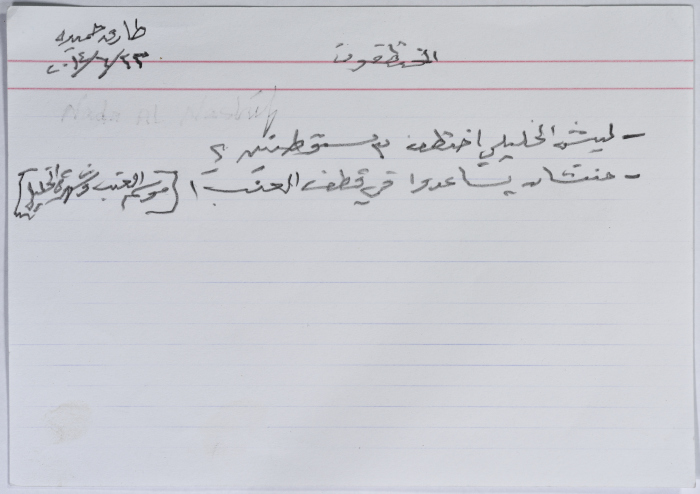 طارق حميدة
٢٠١٤/٦/٢٣
المختطفون
Nada Al Nashif
- ليش الخليلي اختطف ٣ مستوطنين؟
- منشان يساعدوا في قطف العنب! [موسم العنب وشهرة الخليل]